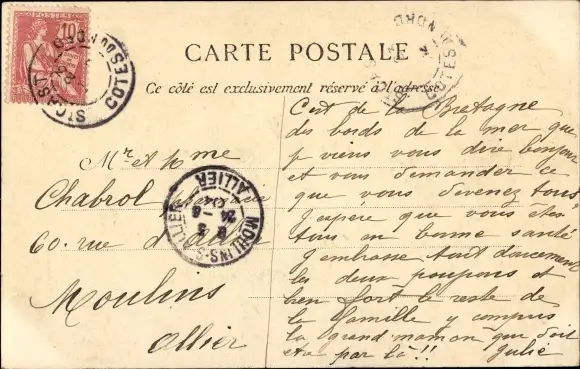 POSTES
10
ST CAST
COTES DU NORD
COTES DU NORD
CARTE POSTALE
Ce côté est exclusivement réservé à l'adresse
Mr et Mme
Chabrol
60. rue d'
Moulins
Allier
MOULINS-S-ALLIER
ALLIER
C'est de la Bretagne
des bords de la mer que
je viens vous dire bonjour
et vous demander ce
que vous devenez tous
j'espère que vous êtes
tous en bonne santé
J'embrasse tout doucement
les deux poupons et
bien fort le reste de
la famille y compris
la grand'maman qui doit
être par là!! Julie